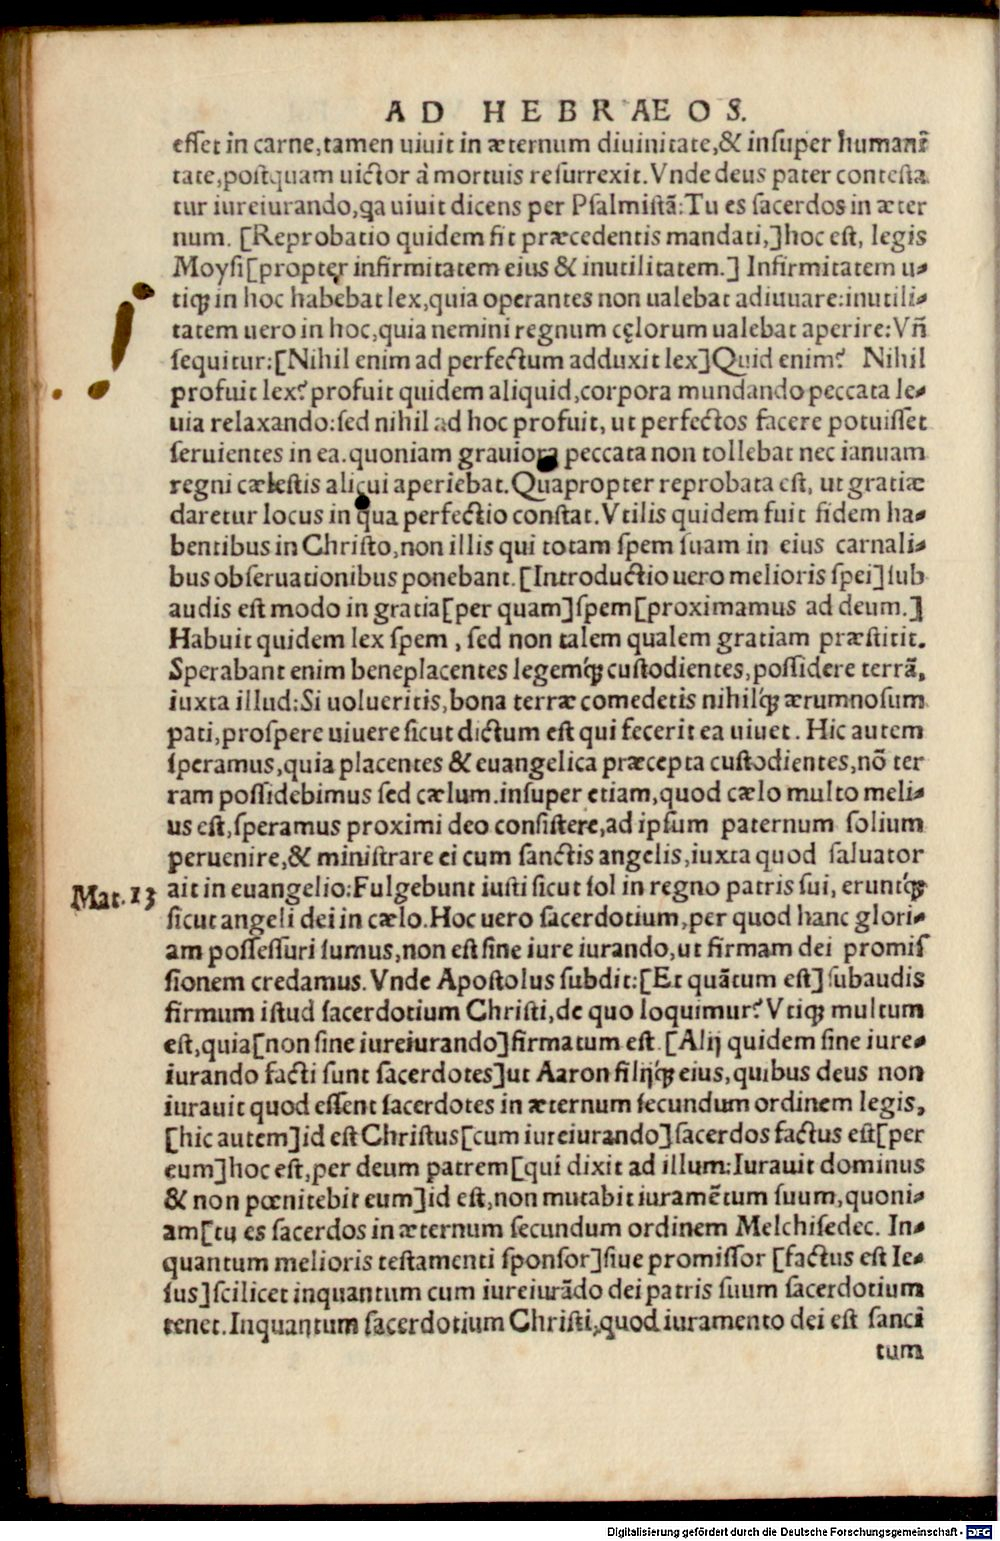 AD HEBRAEOS.
esset in carne, tamen uiuit in æternum diuinitate, & insuper humani̅
tate, postquam uictor à mortuis resurrexit. Vnde deus pater contesta
tur iureiurando, qa uiuit dicens per Psalmistã: Tu es sacerdos in æter
num. [Reprobatio quidem fit præcedentis mandati,] hoc est, legis
Moysi [propter infirmitatem eius & inutilitatem.] Infirmitatem u⸗
tiqꝫ in hoc habebat lex, quia operantes non ualebat adiuuare: inutili⸗
tatem uero in hoc, quia nemini regnum cęlorum ualebat aperire: Vñ
sequitur: [Nihil enim ad perfectum adduxit lex] Quid enim? Nihil
profuit lex? profuit quidem aliquid, corpora mundando peccata le⸗
uia relaxando: sed nihil ad hoc profuit, ut perfectos facere potuisset
seruientes in ea. quoniam grauiora peccata non tollebat nec ianuam
regni cælestis alicui aperiebat. Quapropter reprobata est, ut gratiæ
daretur locus in qua perfectio constat. Vtilis quidem fuit fidem ha⸗
bentibus in Christo, non illis qui totam spem suam in eius carnali⸗
bus obseruationibus ponebant. [Introductio uero melioris spei] sub
audis est modo in gratia [per quam] spem [proximamus ad deum.]
Habuit quidem lex spem, sed non talem qualem gratiam præstitit.
Sperabant enim beneplacentes legemq́ꝫ custodientes, possidere terrã,
iuxta illud: Si uolueritis, bona terræ comedetis nihilq́ꝫ ærumnosum
pati, prospere uiuere sicut dictum est qui fecerit ea uiuet. Hic autem
speramus, quia placentes & euangelica præcepta custodientes, nõ ter
ram possidebimus sed cælum. insuper etiam, quod cælo multo meli⸗
us est, speramus proximi deo consistere, ad ipsum paternum solium
peruenire, & ministrare ei cum sanctis angelis, iuxta quod saluator
Mat. 13 ait in euangelio: Fulgebunt iusti sicut sol in regno patris sui, eruntq́ꝫ
sicut angeli dei in cælo. Hoc uero sacerdotium, per quod hanc glori⸗
am possessuri sumus, non est sine iure iurando, ut firmam dei promis
sionem credamus. Vnde Apostolus subdit: [Et quãtum est] subaudis
firmum istud sacerdotium Christi, de quo loquimur? Vtiqꝫ multum
est, quia [non sine iureiurando] firmatum est. [Alij quidem sine iure⸗
iurando facti sunt sacerdotes] ut Aaron filijq́ꝫ eius, quibus deus non
iurauit quod essent sacerdotes in æternum secundum ordinem legis,
[hic autem] id est Christus [cum iureiurando] sacerdos factus est [per
eum] hoc est, per deum patrem [qui dixit ad illum: Iurauit dominus
& non pœnitebit eum] id est, non mutabit iuramẽtum suum, quoni⸗
am [tu es sacerdos in æternum secundum ordinem Melchisedec. In⸗
quantum melioris testamenti sponsor] siue promissor [factus est Ie⸗
sus] scilicet inquantum cum iureiurãdo dei patris suum sacerdotium
tenet. Inquantum sacerdotium Christi, quod iuramento dei est sanci
tum
Digitalisierung gefördert durch die Deutsche Forschungsgemeinschaft - DFG